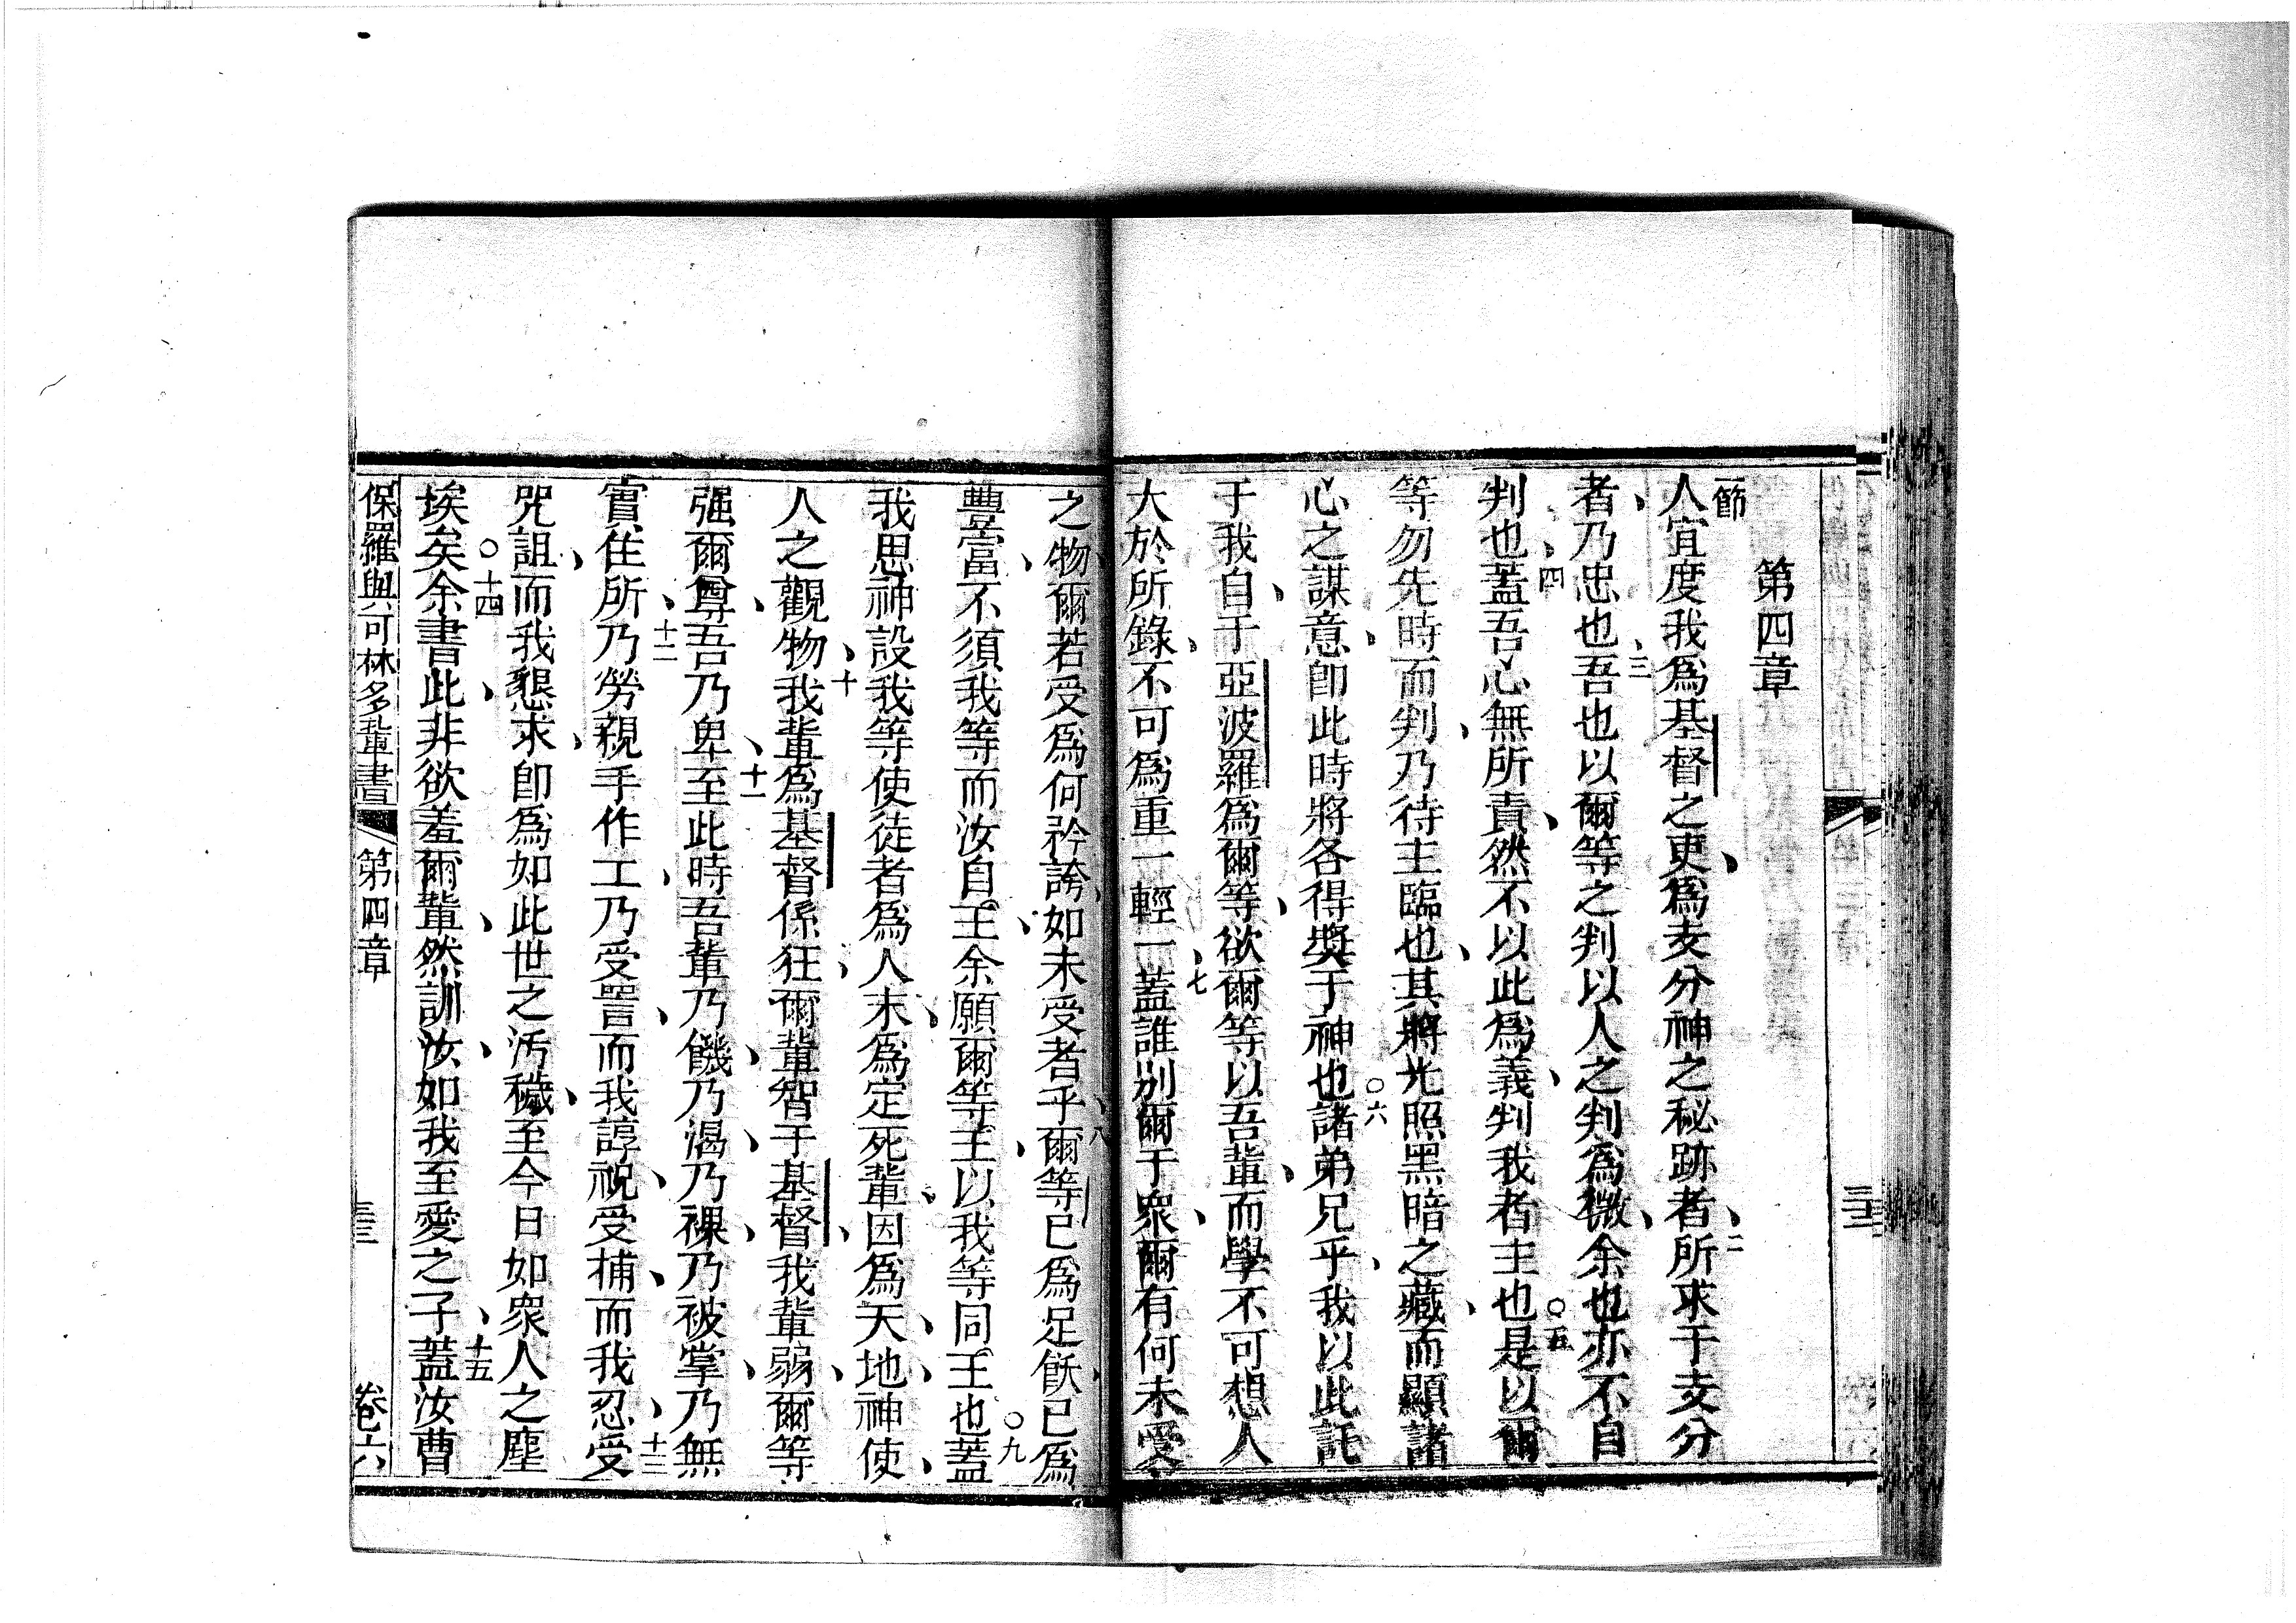 第四章
一節人宜度我爲基督之吏、爲支分神之秘跡者、二所求于支分
者、乃忠也、三吾也以爾等之判以人之判爲微、余也亦不自
判也、四蓋吾心無所責、然不以此爲義、判我者主也○五是以爾
等勿先時而判、乃待主臨也、其將光照黑暗之藏、而顯諸
心之謀意、卽此時將各得奬于神也○六諸弟兄乎、我以此託
于我、自于亞波羅爲爾等、欲爾等以吾輩、而學不可想人
大於所錄、不可爲重一輕一、七蓋誰別爾于衆、爾有何未受、
之物、爾若受爲何矜誇、如未受者乎、八爾等已爲足飫、已爲
豐富、不須我等而汝自王、余願爾等王、以我等同王也○九蓋
我思神設我等使徒者爲人末、爲定死輩、因爲天、地、神使、
人之觀物、十我輩爲基督係狂、爾輩智于基督、我輩弱、爾等
强、爾尊、吾乃卑、十一至此時吾輩乃饑、乃渴、乃裸、乃被掌、乃無
實住所、十二乃勞親手作工、乃受詈、而我諄祝、受捕、而我忍、十三受
咒詛、而我懇求、卽爲如此世之汚穢、至今日如衆人之塵
埃矣○十四余書此、非欲羞爾輩、然訓汝、如我至愛之子、十五蓋汝曹
保羅與可林多輩書 第四章 三三 卷六